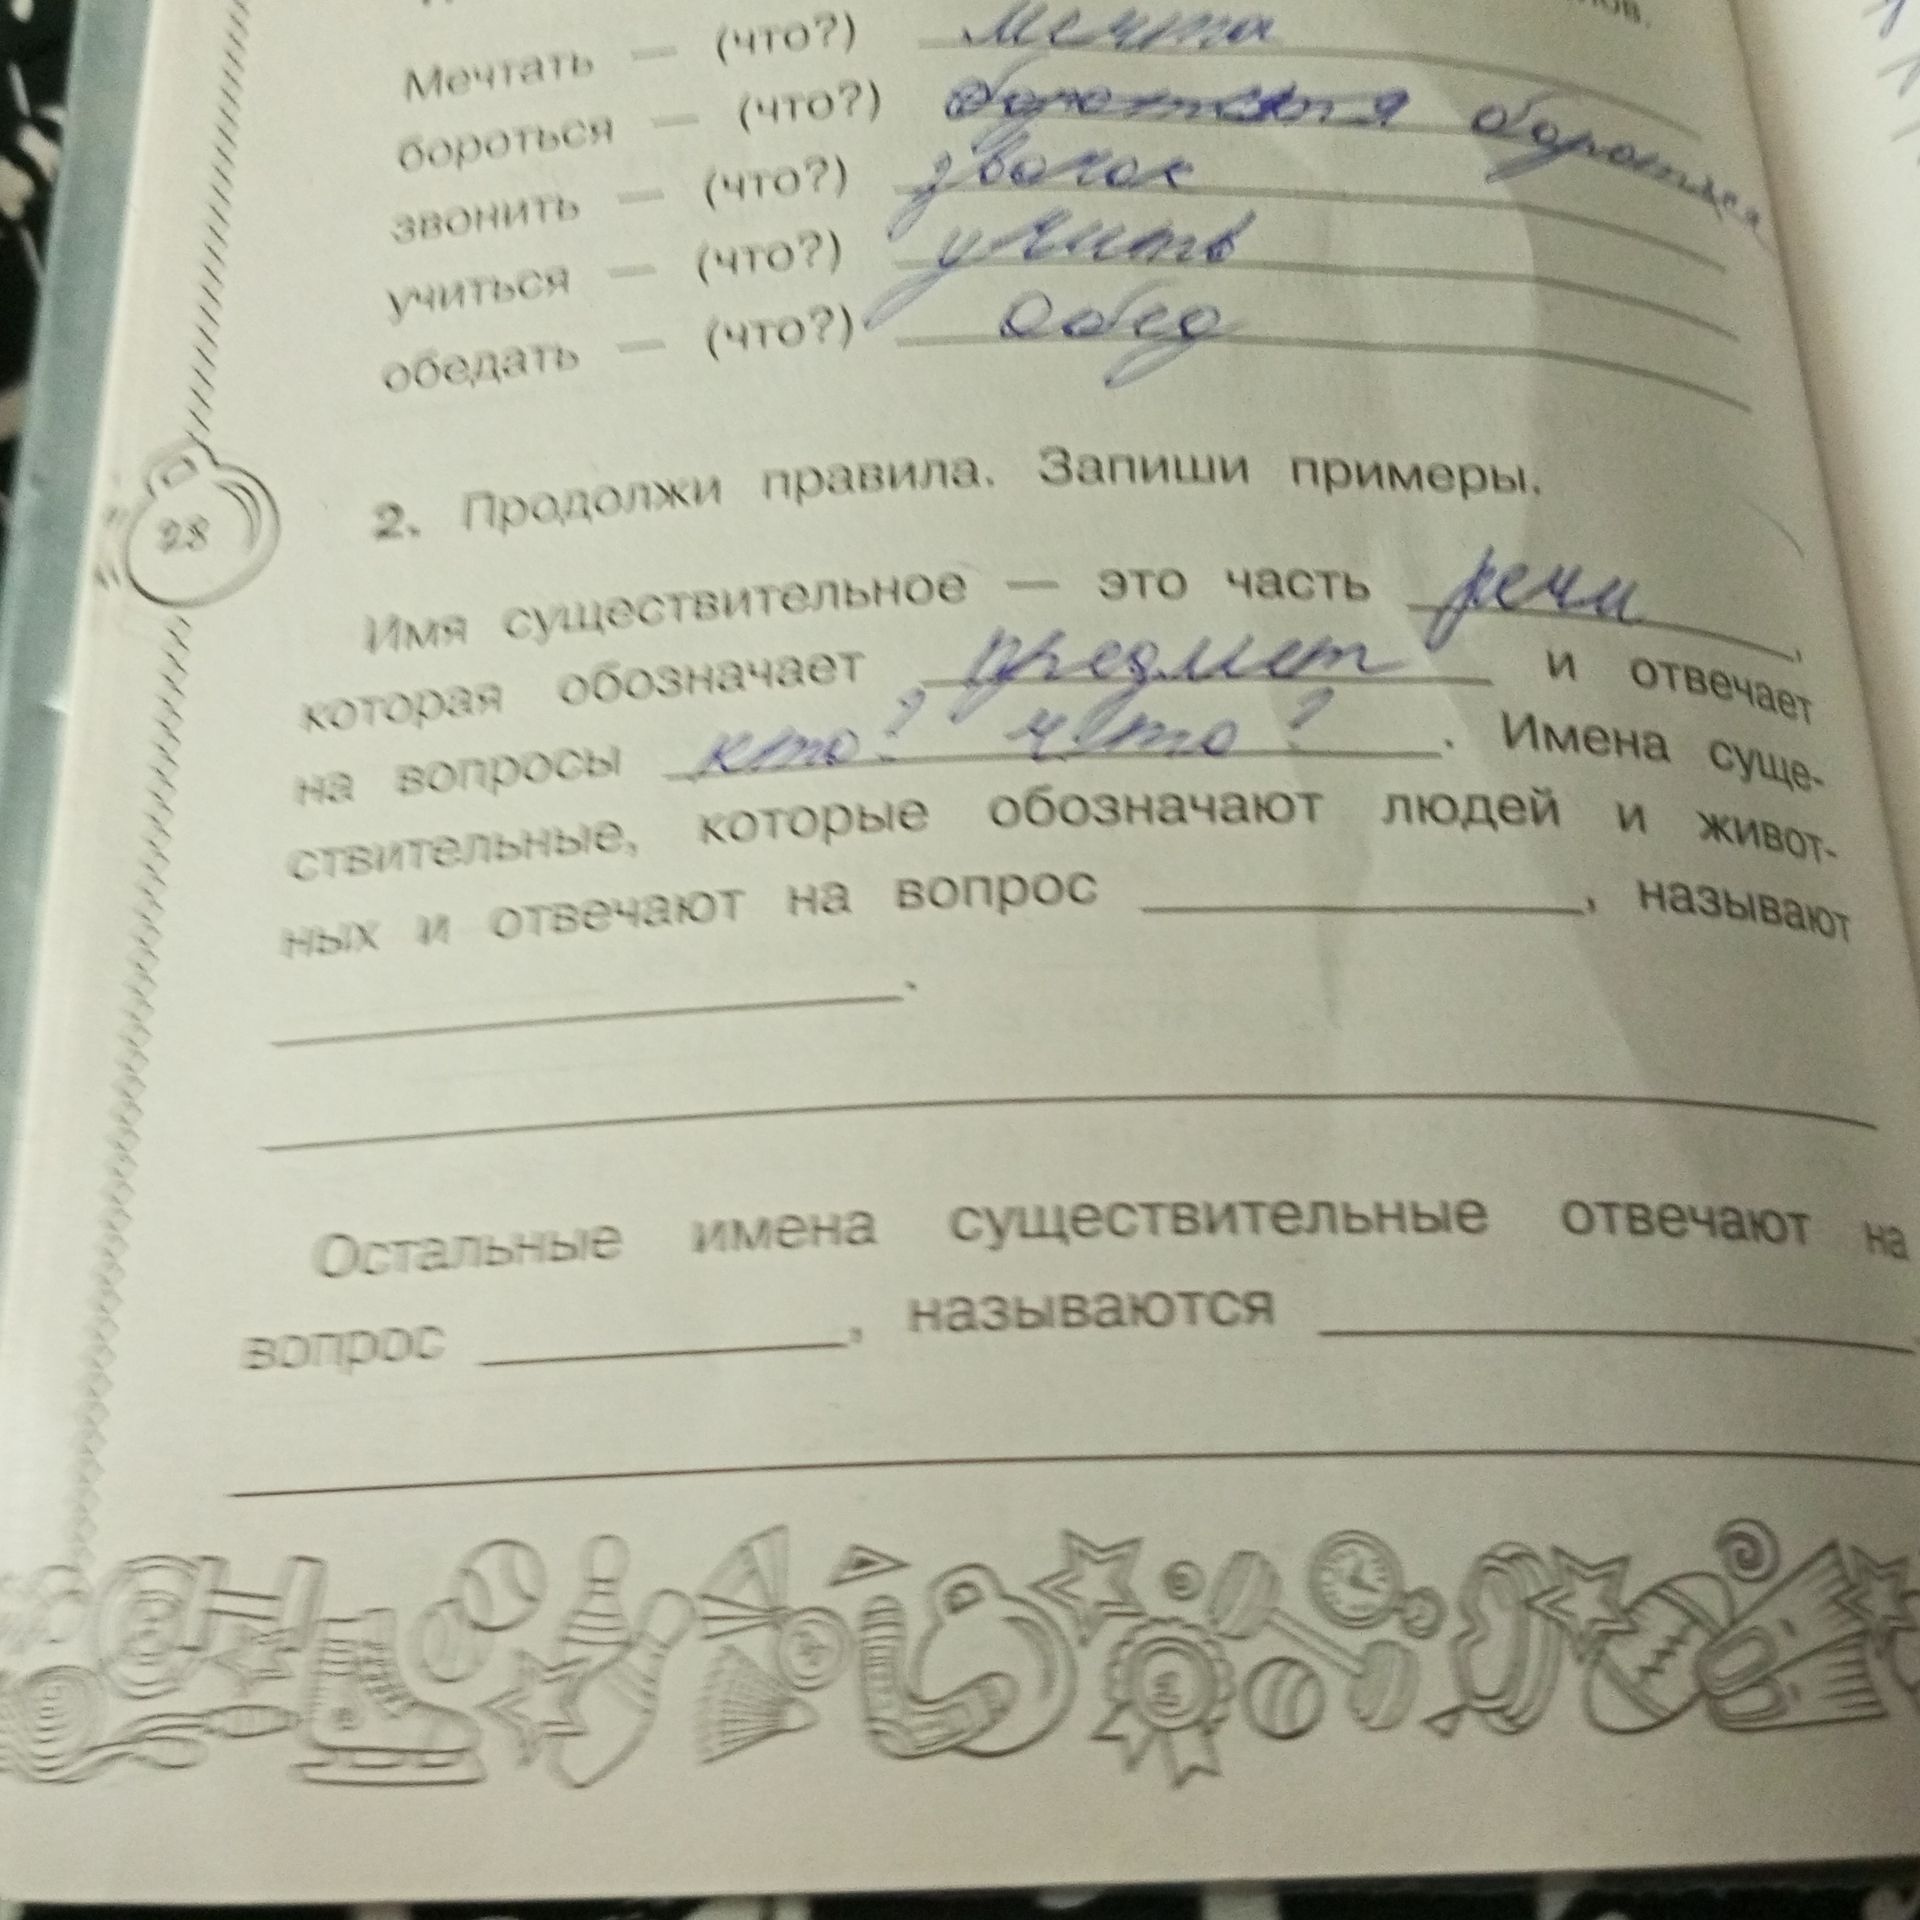 Мечтать — (что?) мечта
бороться — (что?) боротся
звонить — (что?) звонок
учиться — (что?) учить
обедать — (что?) Обед
28
2. Продолжи правила. Запиши примеры.
Имя существительное — это часть речи,
которая обозначает предмет и отвечает
на вопросы кто? что? . Имена суще-
ствительные, которые обозначают людей и живот-
ных и отвечают на вопрос ____, называют
____.
Остальные имена существительные отвечают на
вопрос ____, называются ____.